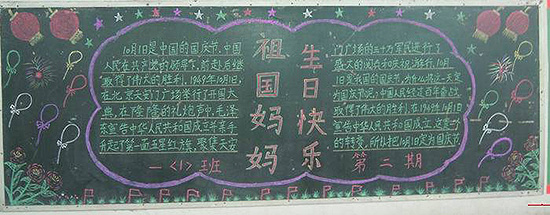 10月1日是中国的国庆节,中国
人民在共产党的领导下,前赴后继
取得了伟大的胜利,1949年10月1日,
在北京天安门广场举行了开国大
典,在隆隆的礼炮声中,毛泽
东宣告中华人民共和国成立并亲手
升起了第一面五星红旗,聚集天安
一〈1〉班
祖国妈妈
生日快乐
门广场的三十万军民进行了
盛大的阅兵和庆祝游行,10月
1日是我国的国庆节,
取得了伟大的胜利,在1949年10月1日
宣告中华人民共和国成立,
的转变,所以把10月1日定为国庆节
第二期